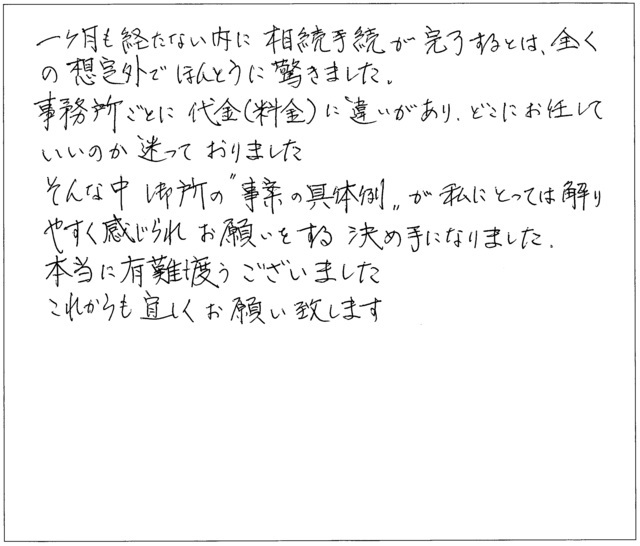 一ヶ月も経たない内に 相続手続が完了するとは、全く
の想定外でほんとうに驚きました。
事務所ごとに代金(料金)に違いがあり、どこにお任して
いいのか迷っておりました
そんな中 御所の〝事案の具体例〟が私にとっては解り
やすく感じられ お願いをする 決め手になりました。
本当に有難度うございました
これからも宜しくお願い致します